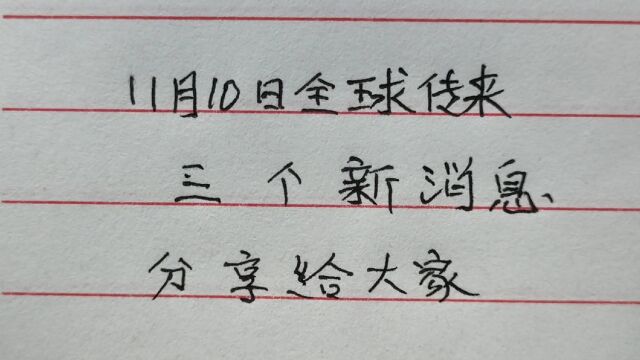 11月10日全球传来
三个新消息
分享给大家